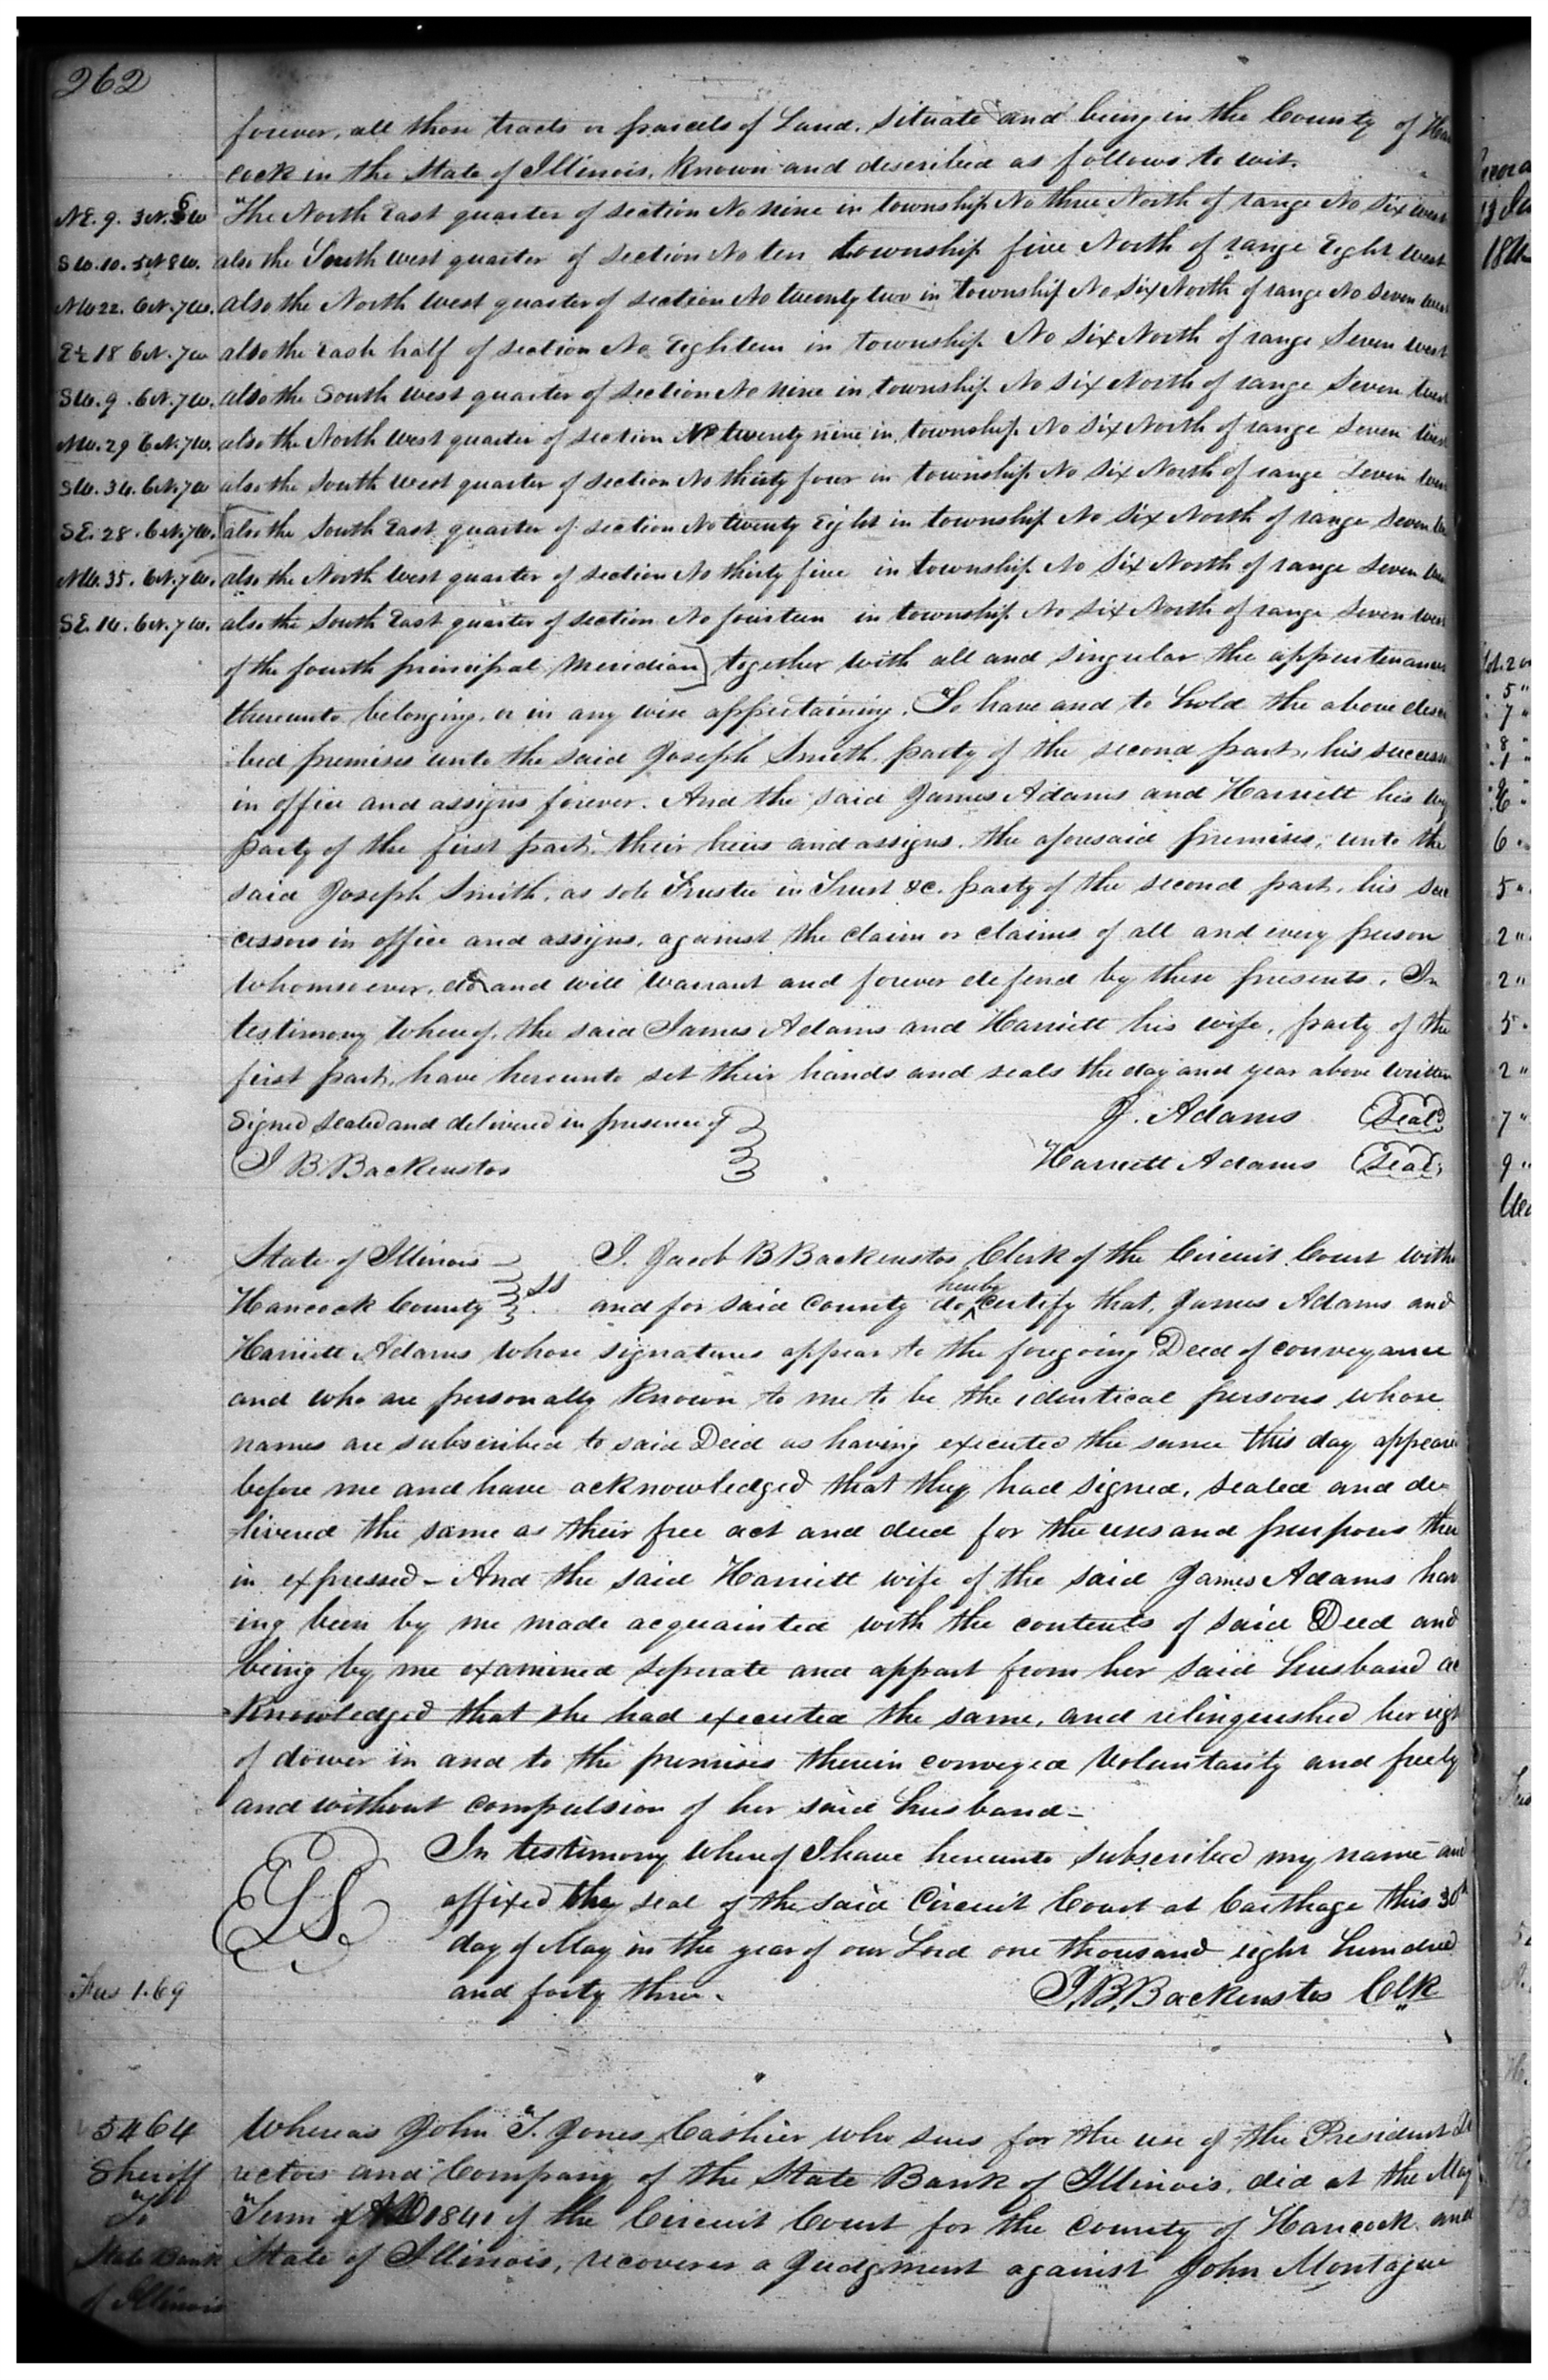 262
forever, all those tracts or parcels of Land, situate and being in the County of Han
cock in the State of Illinois, Known and described as follows to wit.
NE. 9. 3N. 6W The North East quarter of section No nine in township No three North of range No six west
SW. 10. 5N 8W. also the South West quarter of section No ten township five North of range Eight West
NW 22. 6N. 7W. also the North West quarter of section No twenty two in township No Six North of range No Seven West
E½ 18 6N. 7W also the East half of section No Eighteen in township No Six North of range Seven West
SW. 9. 6N. 7W. also the South West quarter of section No nine in township No Six North of range Seven West
NW. 29 6N. 7W. also the North West quarter of section No twenty nine in township No Six North of range Seven West
SW. 34. 6N. 7W also the South West quarter of section No thirty four in township No Six North of range Seven West
SE. 28. 6N. 7W. [also the South East quarter of section No twenty Eight in township No Six North of range Seven We
NW. 35. 6N. 7W. also the North West quarter of section No thirty five in township No Six North of range Seven Wes
SE. 14. 6N. 7W. also the South East quarter of section No fourteen in township No Six North of range Seven West
of the fourth principal Meridian] together with all and singular the appurtenances
thereunto belonging or in any wise appertaining. To have and to hold the above descri
bed premises unto the said Joseph Smith, party of the second part, his successors
in office and assigns forever. And the said James Adams and Harriett his wife
party of the first part, their heirs and assigns, the aforesaid premises, unto the
said Joseph Smith, as sole Trustee in Trust &c. party of the second part, his suc
cessors in office and assigns, against the claim or claims of all and every person
whomsoever, do and will Warrant and forever defend by these presents. In
testimony whereof, the said James Adams and Harriett his wife, party of the
first part, have hereunto set their hands and seals the day and year above written
Signed Sealed and delivered in presence of J. Adams (Seal)
J B Backenstos Harriett Adams (Seal)
State of Illinois I, Jacob B Backenstos, Clerk of the Circuit Court within
Hancock County } ss and for said County do hereby certify that, James Adams and
Harriett Adams whose signatures appear to the foregoing Deed of conveyance
and who are personally Known to me to be the identical persons whose
names are subscribed to said Deed as having executed the same this day appeared
before me and have acknowledged that they had signed, sealed and de-
livered the same as their free act and deed for the uses and purposes there
in expressed - And the said Harriett wife of the said James Adams hav
=ing been by me made acquainted with the contents of said Deed and
being by me examined seperate and appart from her said husband ac
=Knowledged that she had executed the same, and relinquished her right
of dower in and to the premises therein conveyed Voluntarily and freely
and without compulsion of her said husband -
In testimony whereof I have hereunto subscribed my name and
LS affixed the seal of the said Circuit Court at Carthage this 30th
day of May in the year of our Lord one thousand eight hundred
Fees 1.69 and forty three. J. B. Backenstos Clk
5464 Whereas John T. Jones Cashier who sues for the use of the President Di
Sheriff rectors and Company of the State Bank of Illinois, did at the May
To Term of AD 1841 of the Circuit Court for the County of Hancock and
State Bank State of Illinois, recoverer a Judgment against John Montague
of Illinois